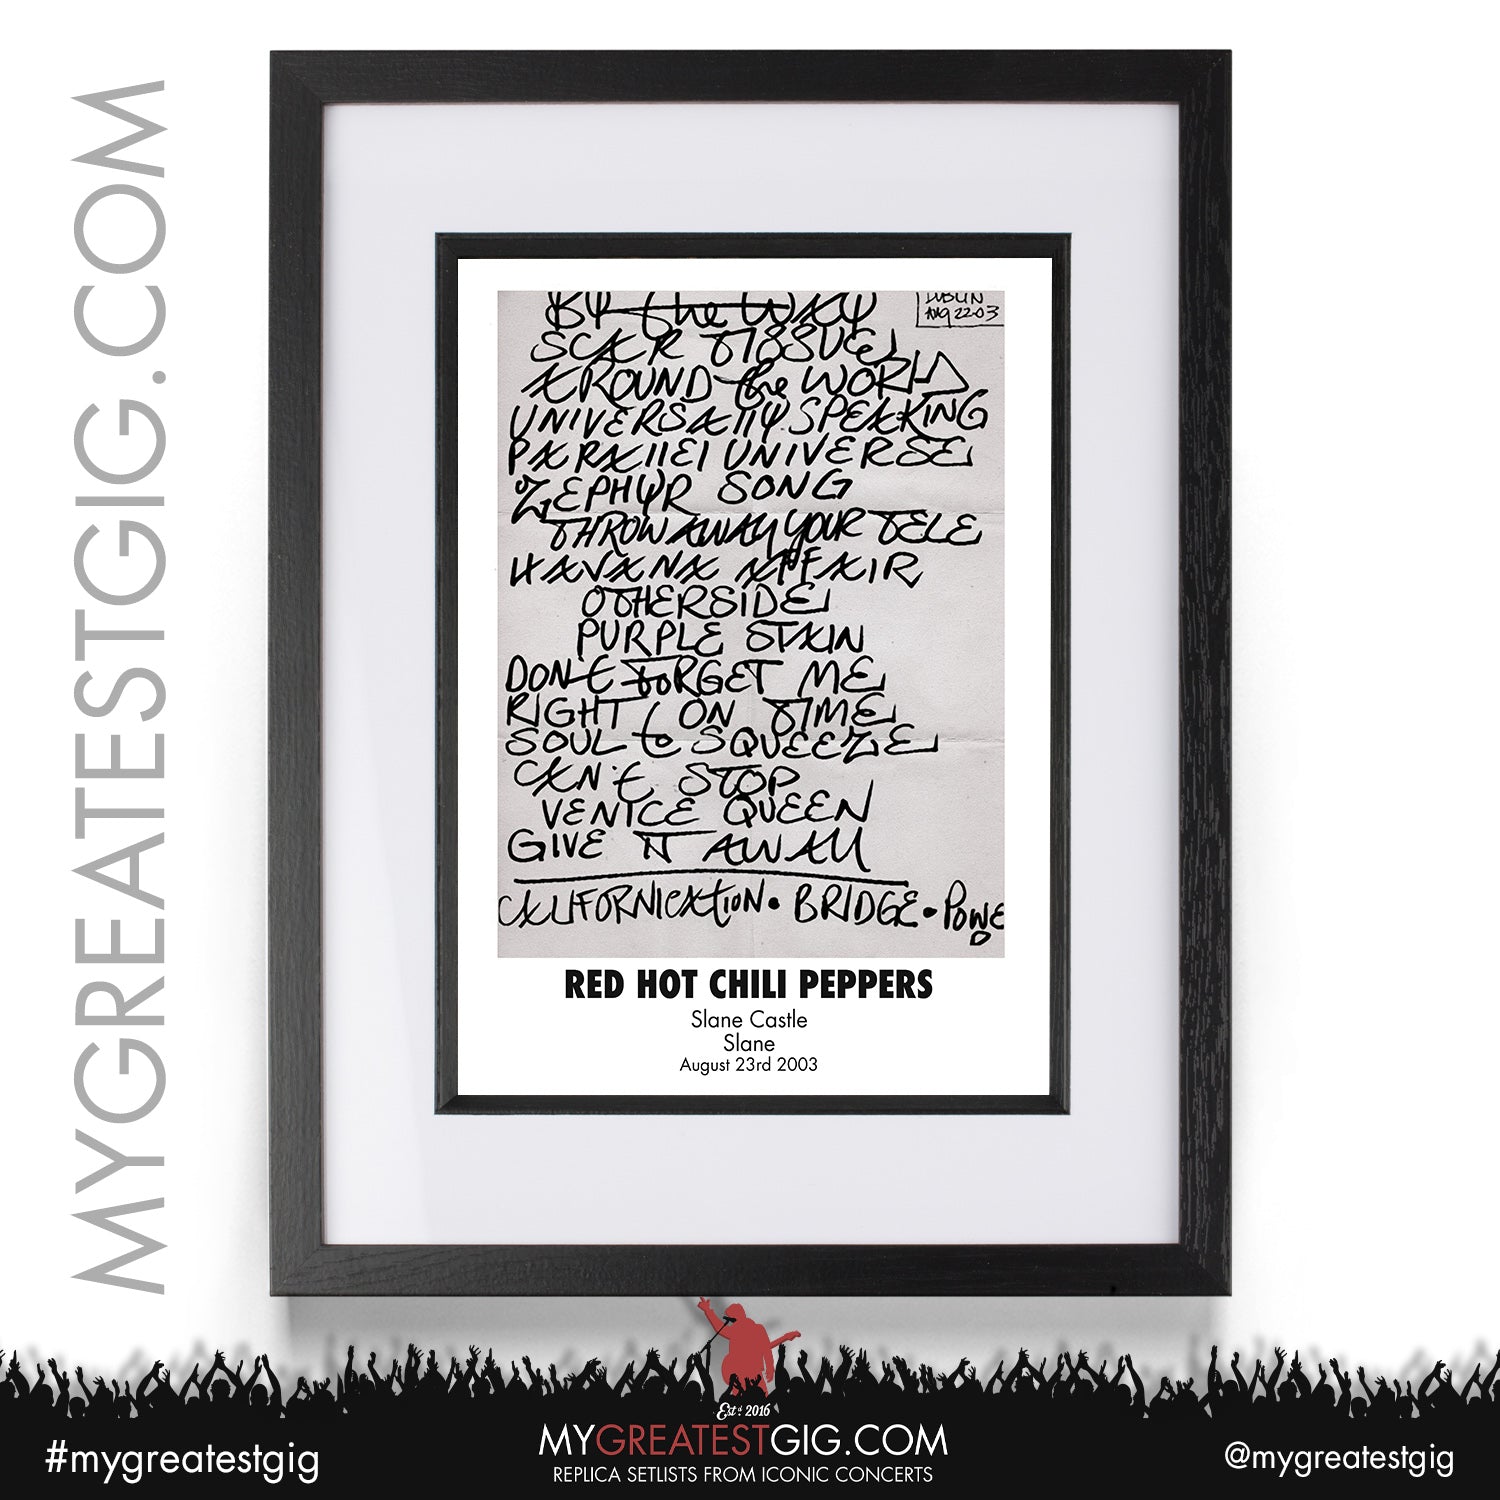 MYGREATESTGIG.COM
BY the WAY
DUBLIN
AUG 22-03
SCAR TISSUE
AROUND the WORLD
UNIVERSALLY SPEAKING
PARALLEL UNIVERSE
ZEPHYR SONG
THROW AWAY YOUR TELE
HAVANA AFFAIR
OTHERSIDE
PURPLE STAIN
DON't FORGET ME
RIGHT ON TIME
SOUL to SQUEEZE
CAN't STOP
VENICE QUEEN
GIVE IT AWAY
CALIFORNICATION • BRIDGE • POWE
RED HOT CHILI PEPPERS
Slane Castle
Slane
August 23rd 2003
Est: 2016
MYGREATESTGIG.COM
REPLICA SETLISTS FROM ICONIC CONCERTS
#mygreatestgig
@mygreatestgig